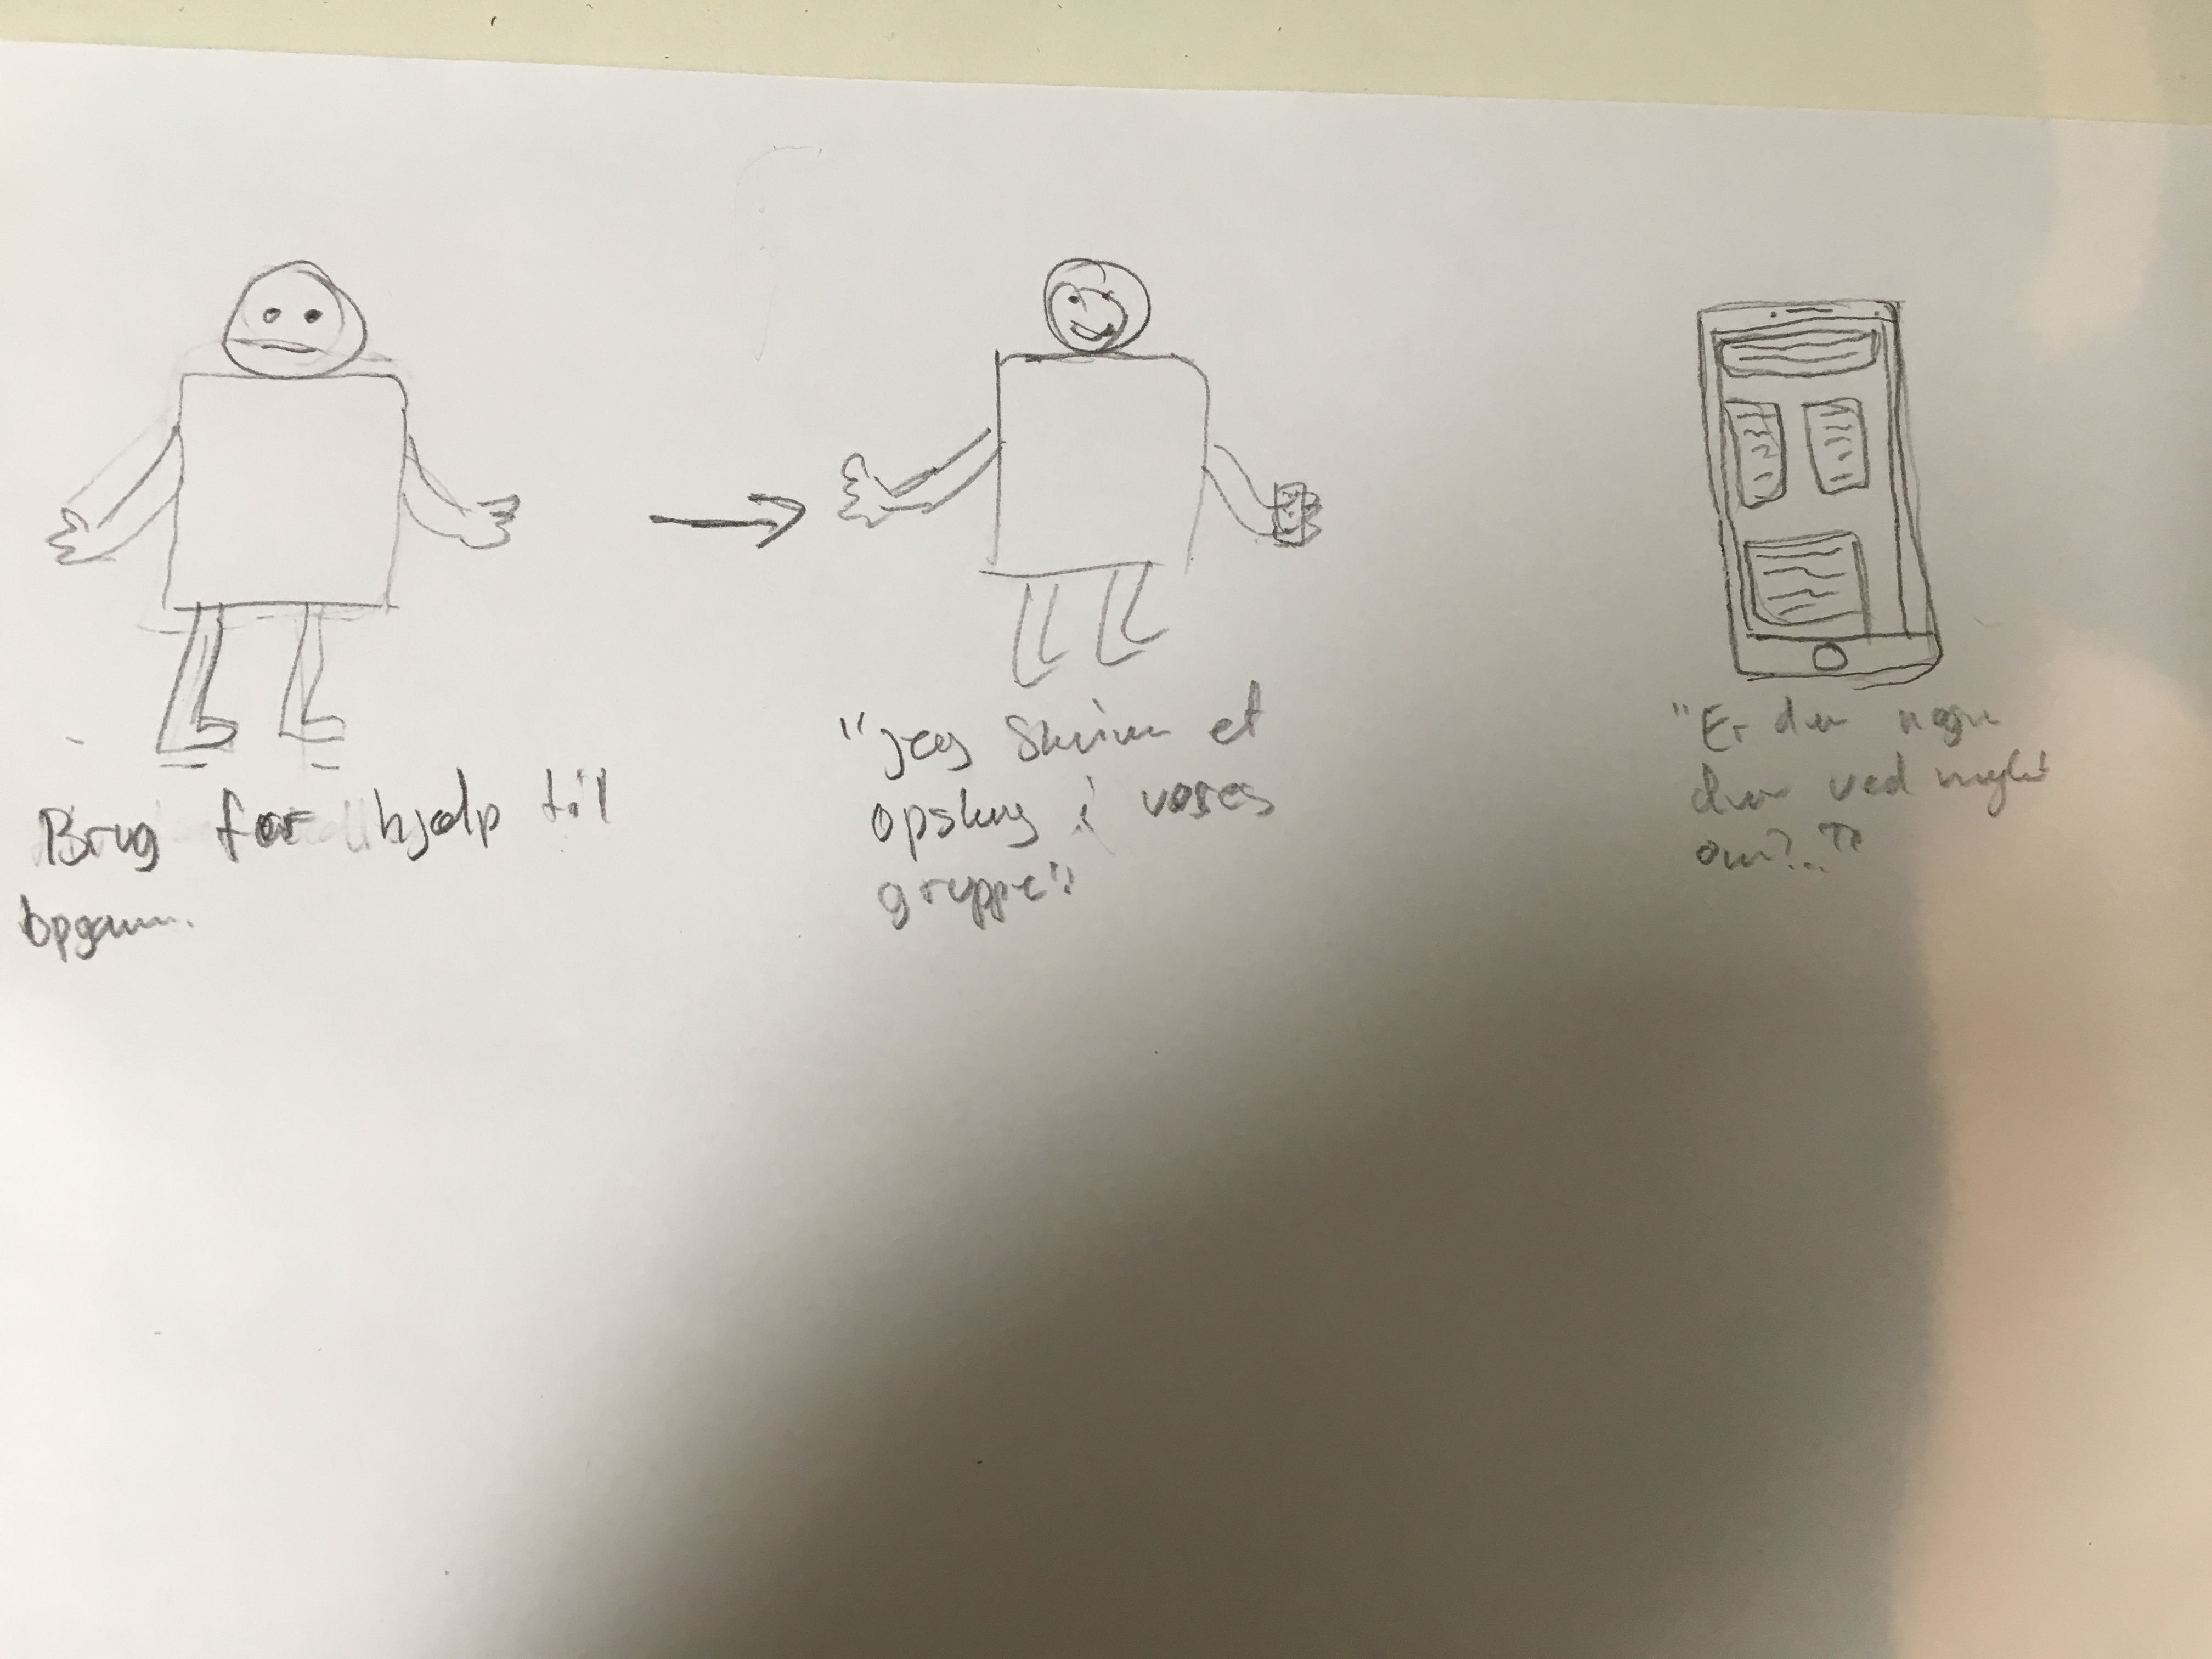 Brug for hjælp til
opgaven.
"Jeg skriver et
opslag i vores
gruppe"
"Er der nogen
der ved noget
om?..